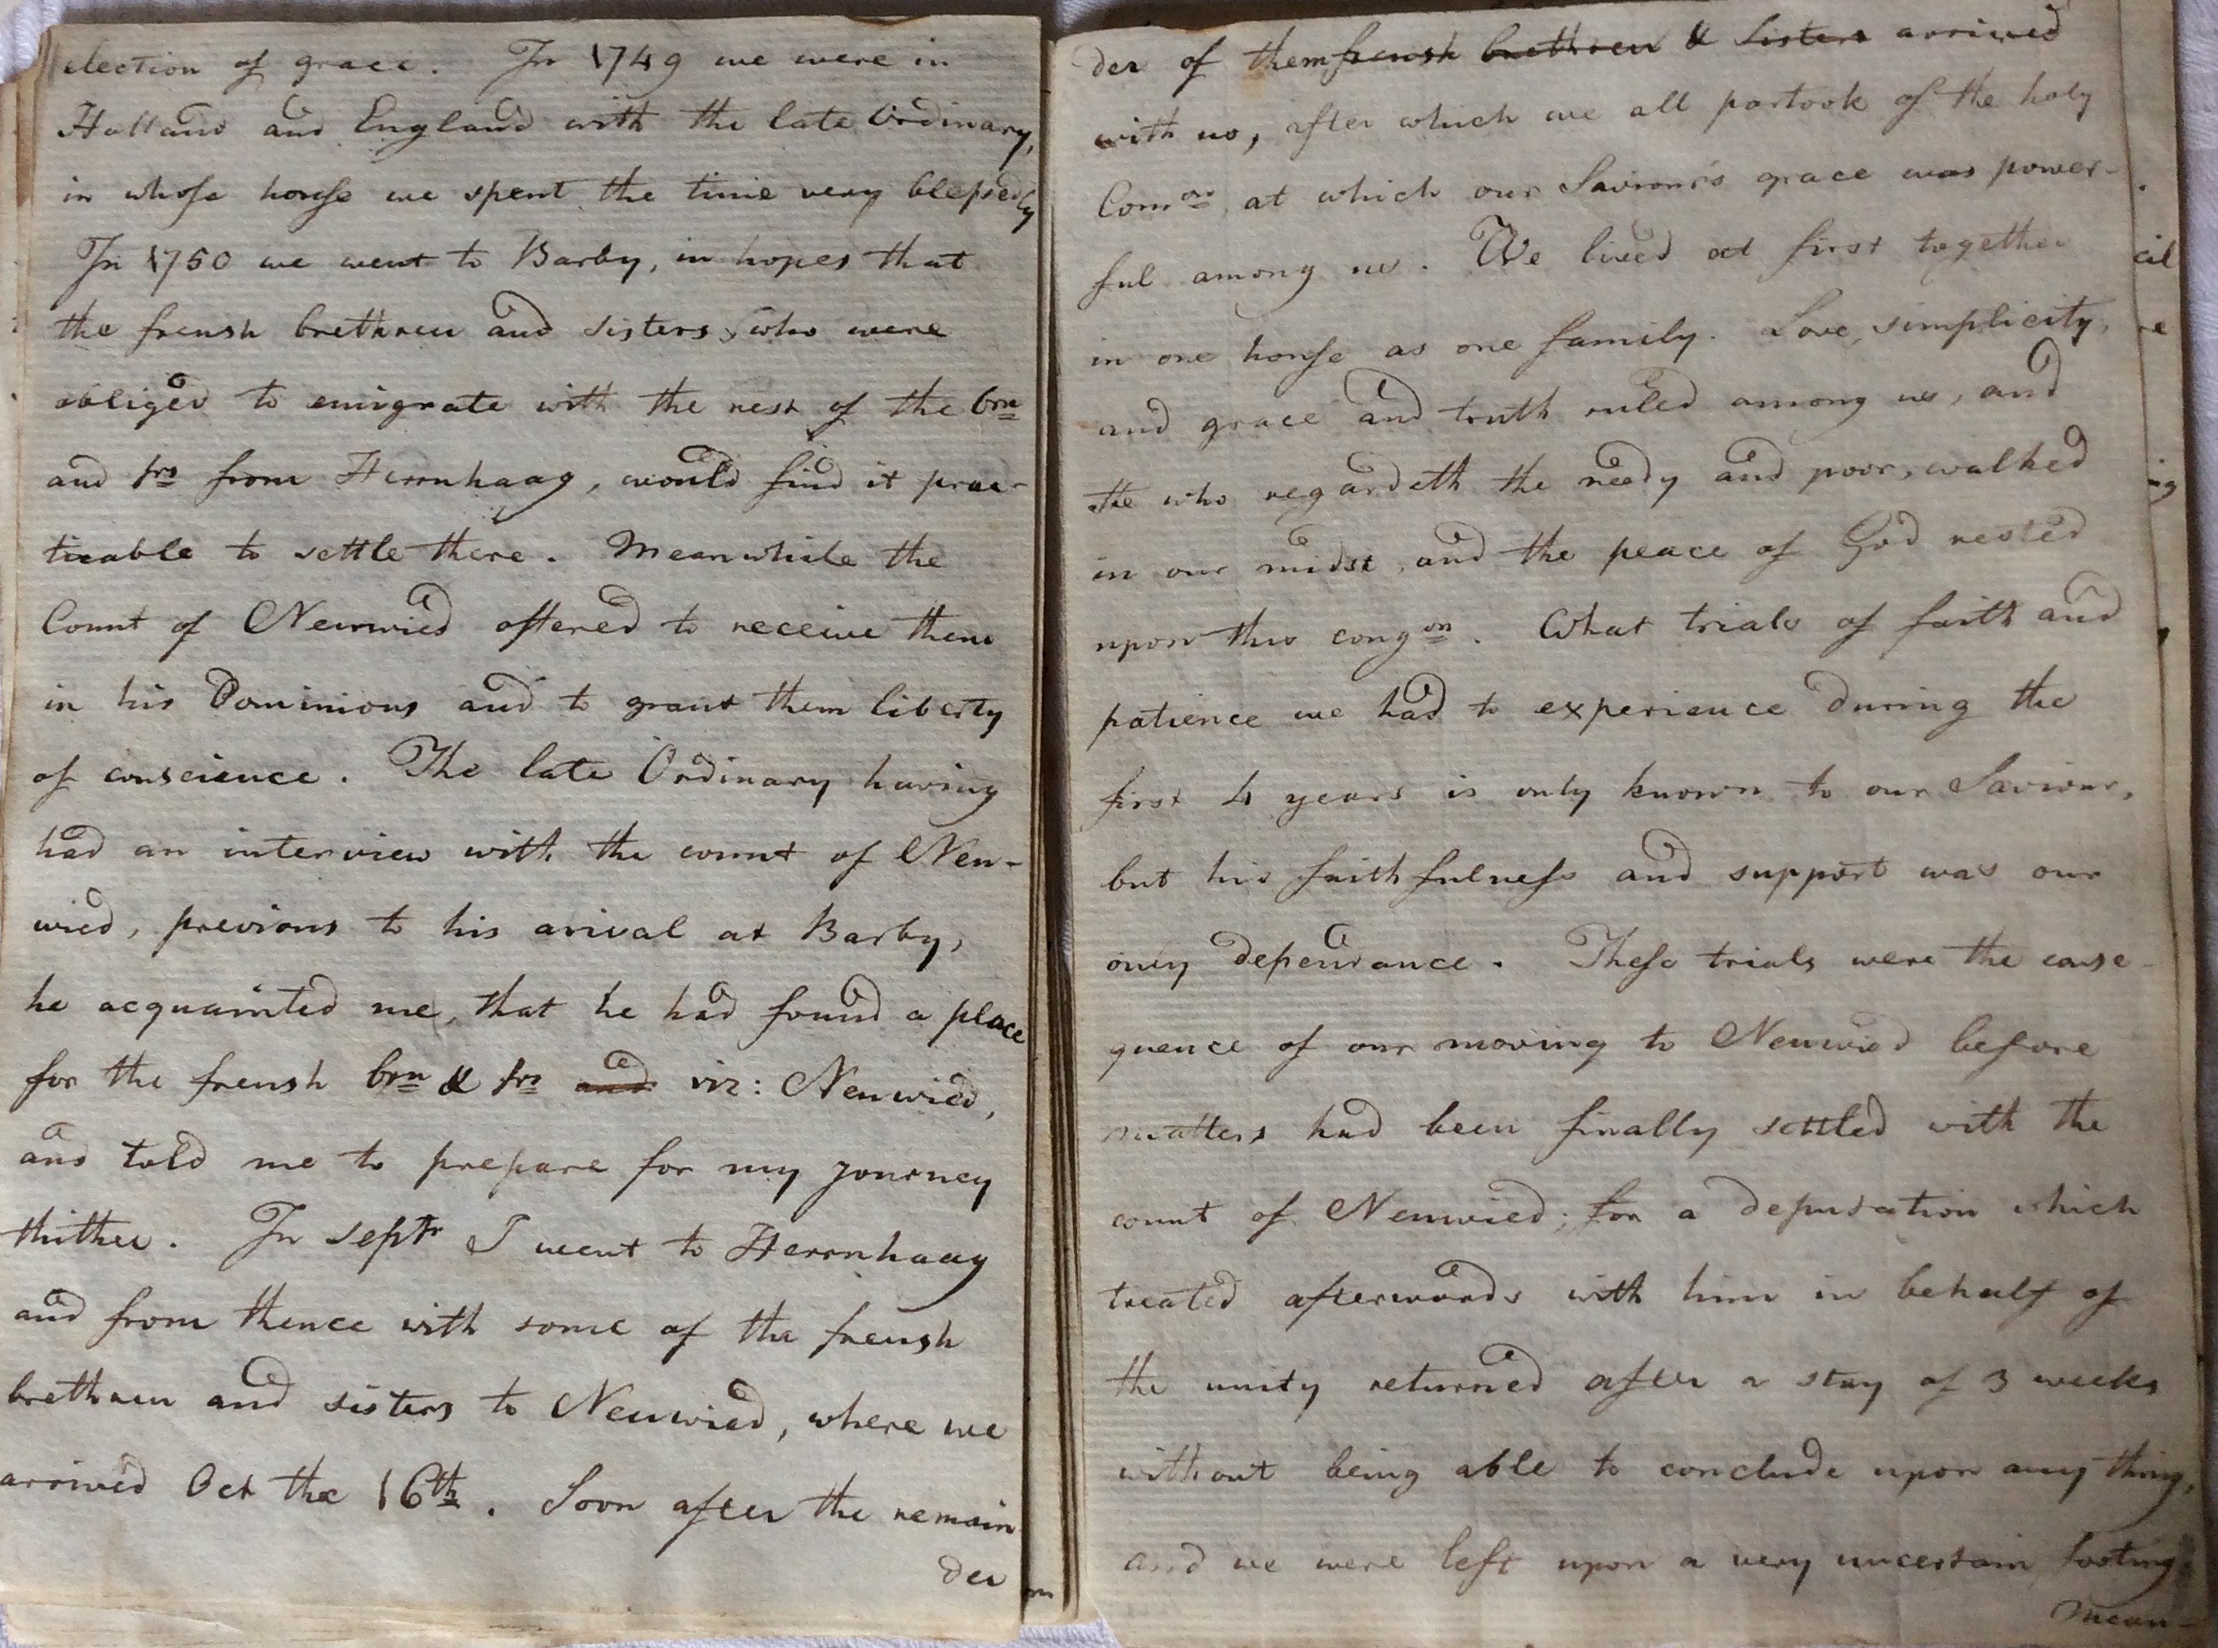 election of grace. In 1749 we were in
Holland and England with the late Ordinary,
in whose house we spent the time very blessedly
In 1750 we went to Barby, in hopes that
the frensh brethren and sisters, who were
obliged to emigrate with the rest of the brn
and srs from Herrnhaag, would find it prac-
ticable to settle there. Meanwhile the
Count of Neuwied offered to receive them
in his Dominions and to grant them liberty
of conscience. The late Ordinary having
had an interview with the count of Neu-
wied, previous to his arival at Barby,
he acquainted me, that he had found a place
for the frensh brn & srs and viz: Neuwied,
and told me to prepare for my journey
thither. In septr I went to Herrnhaag
and from thence with some of the frensh
brethren and sisters to Neuwied, where we
arrived Oct the 16th. Soon after the remain
der
der of them frensh brethren & sisters arrived
with us, after which we all partook of the holy
Comon at which our Saviour's grace was power-
ful among us. We lived at first together
in one house as one family. Love, simplicity,
and grace and truth ruled among us, and
He who regardeth the needy and poor, walked
in our midst, and the peace of God rested
upon this congon. What trials of faith and
patience we had to experience during the
first 4 years is only known to our Saviour,
but his faithfulness and support was our
only dependance. These trials were the conse-
quence of our moving to Neuwied before
matters had been finally settled with the
count of Neuwied; for a deputation which
treated afterwards with him in behalf of
the unity returned after a stay of 3 weeks
without being able to conclude upon any thing,
and we were left upon a very uncertain footing.
Mean-